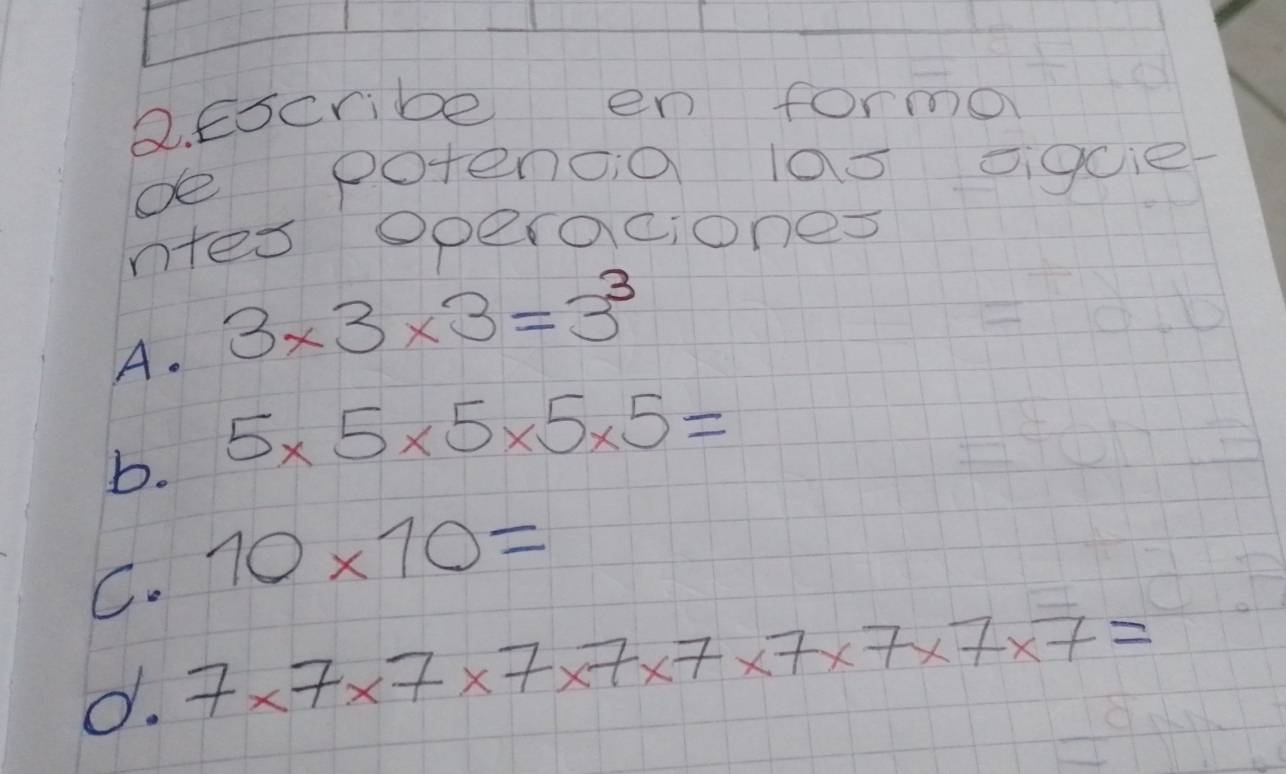 2. Escribe en forma
de potencia las siguie-
ntes operaciones
A. 3 × 3 × 3 = 3³
b. 5 × 5 × 5 × 5 × 5 =
C. 10 × 10 =
d. 7 × 7 × 7 × 7 × 7 × 7 × 7 × 7 × 7 × 7 =